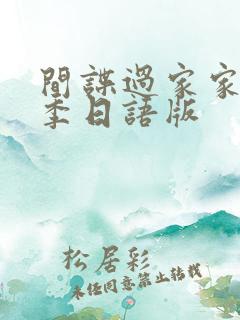 間諜過家家
季日語版
松居彩
未经同意禁止转载